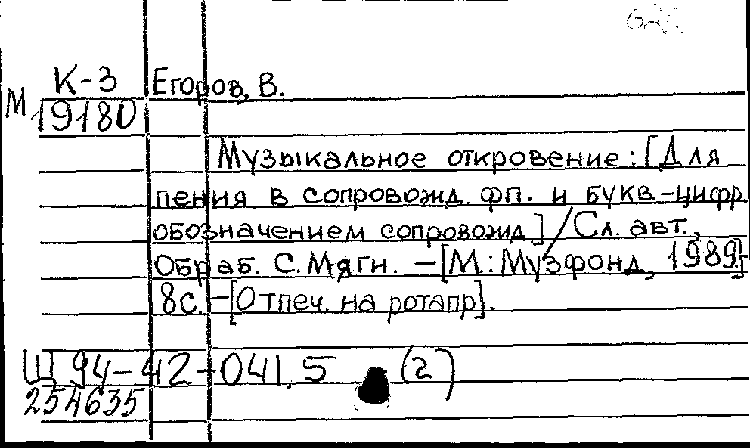 К-3 Егоров, В.
М 19180
Музыкальное откровение: [Для
пения в сопровожд. фп. и букв-цифр
обозначением сопровожд] / Сл. авт.,
Обраб. С. Мягн. – [М.: Музфонд, 1989]
8с. – [Отпеч. на ротапр].
Ш 94-42-041.5 (2)
254635